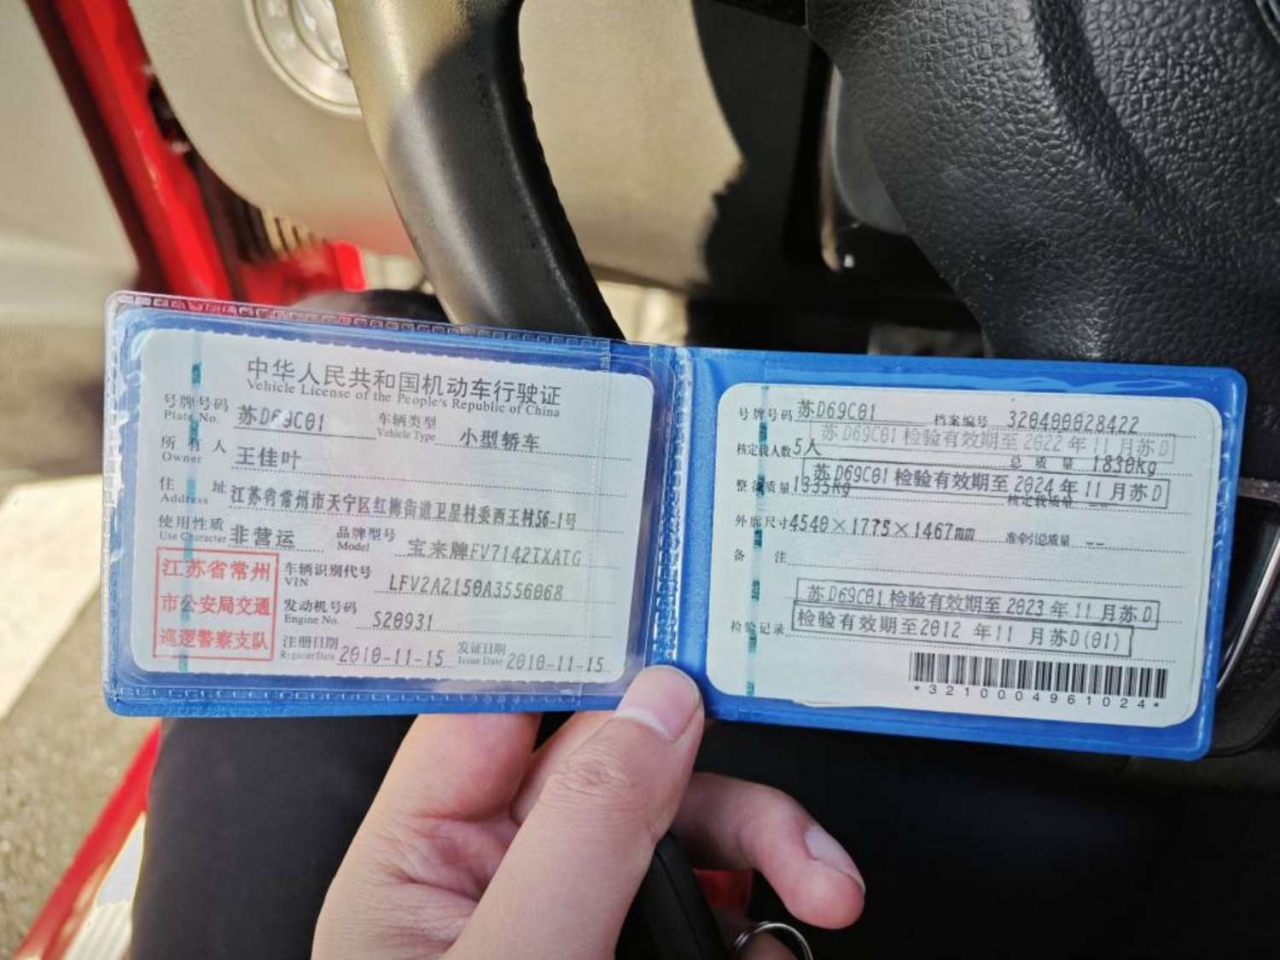 中华人民共和国机动车行驶证
Vehicle License of the People's Republic of China
号牌号码 苏D69C01 车辆类型 小型轿车
Plate No. Vehicle Type
所有人 王佳叶
Owner
住址 江苏省常州市天宁区红梅街道卫星村委西王村56-1号
Address
使用性质 非营运 品牌型号 宝来牌FV7142TXATG
Use Character Model
江苏省常州
市公安局交通
巡逻警察支队
车辆识别代号 LFV2A2150A3556068
VIN
发动机号码 S20931
Engine No.
注册日期 2010-11-15 发证日期 2010-11-15
Register Date Issue Date
号牌号码 苏D69C01 档案编号 320400028422
苏D69C01 检验有效期至2022年11月苏D
核定载人数 5人 总质量 1830kg
苏D69C01 检验有效期至2024年11月苏D
整备质量 1335kg 核定载质量 --
外廓尺寸 4540×1775×1467mm 准牵引总质量 --
备注
苏D69C01 检验有效期至2023年11月苏D
检验记录 检验有效期至2012 年11 月苏D(01)
*3210004961024*